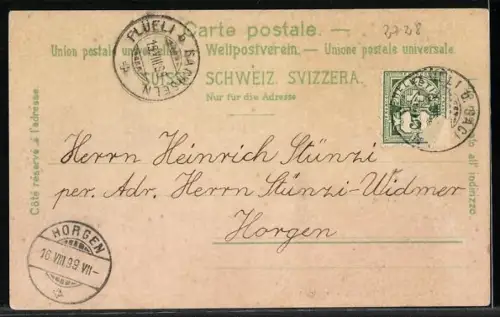 Carte postale.
2728
Union postale universelle. Weltpostverein. – Unione postale universale.
SUISSE. SCHWEIZ. SVIZZERA.
Nur für die Adresse
Côté réservé à l'adresse.
all' indirizzo.
FLÜELI b. SACHSELN
HELVETIA
5
Herrn Heinrich Stünzi
per. Adr. Herrn Stünzi-Widmer
Horgen
HORGEN
16 VIII 99 VII–